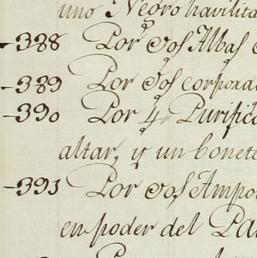 uno Negro havilita
388 Por dos Albas
389 Por dos corporea
390 Por 4 Purifica
altar, y un bonete
391 Por dos Ampo
en poder del Pa